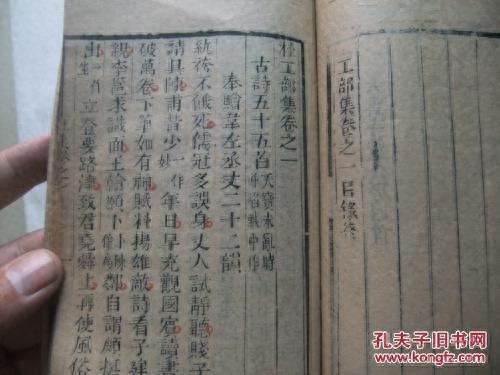 工部集卷之一目錄終
杜工部集卷之一
古詩五十五首天寶未亂時并陷賊中作
奉贈韋左丞丈二十二韻
紈袴不餓死儒冠多誤身丈人試靜聽賤子
請具陳甫昔少一作年日早充觀國賓讀書
破萬卷下筆如有神賦料揚雄敵詩看子建
親李邕求識面王翰願卜鄰自謂頗挺
出一立登要路津致君堯舜上再使風俗
孔夫子旧书网
www.kongfz.com